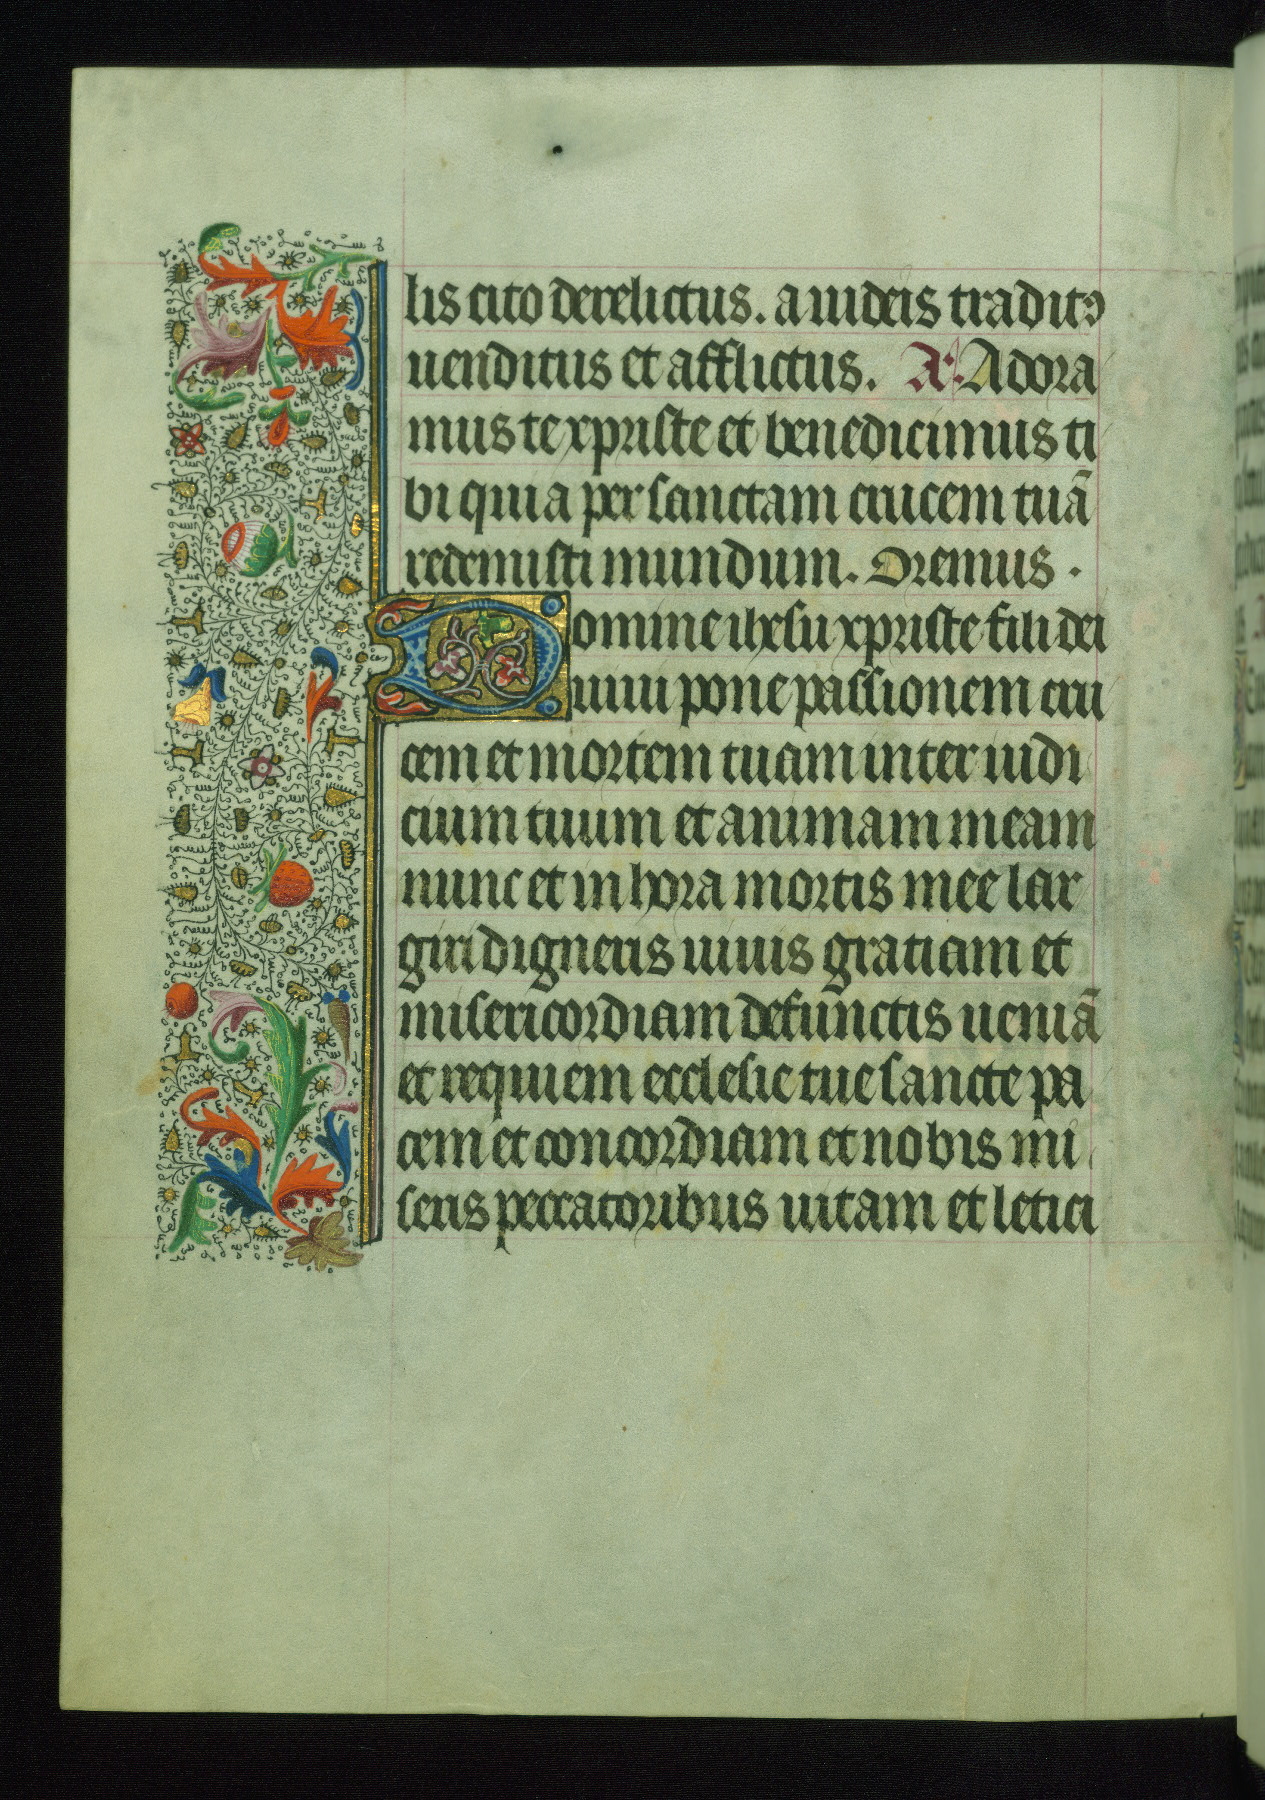 lis cito derelictus. a iudeis traditꝯ
uenditus et afflictus. A: Adora
mus te xpriste et benedicimus ti
bi quia per sanctam crucem tuā
redemisti mundum. Oremus.
Domine ihesu xpriste fili dei
uiui pone passionem cru
cem et mortem tuam inter iudi
cium tuum et animam meam
nunc et in hora mortis mee lar
giri digneris uiuis gratiam et
misericordiam defunctis ueniā
et requiem ecclesie tue sancte pa
cem et concordiam et nobis mi
seris peccatoribus uitam et letici